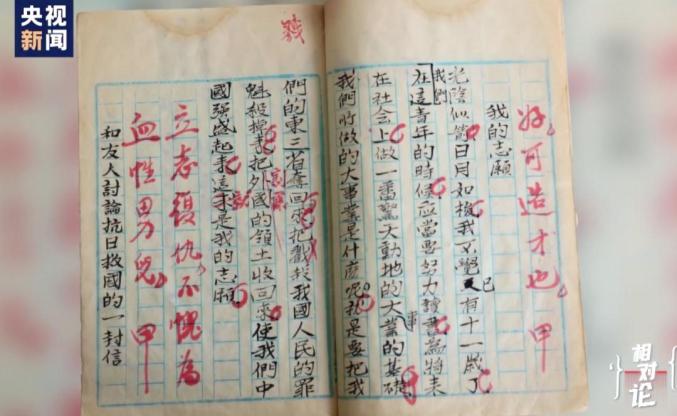 央视
新闻
好可造才也 甲
我的志願
光陰似箭日月如梭我不覺已有十一歲了
我們
在這青年的時候应當要努力讀書為將来
在社会上做一番驚天動地的大事業的基礎
我們所做的大事業是什麼呢我是要把我
們的東三省奪回來把戮我國人民的罪
魁殺掉把外國的領土收回來使我們中
國强盛起来這是我的志願
立志復仇不愧為
血性男兒 甲
和友人討論抗日救國的一封信
相对论